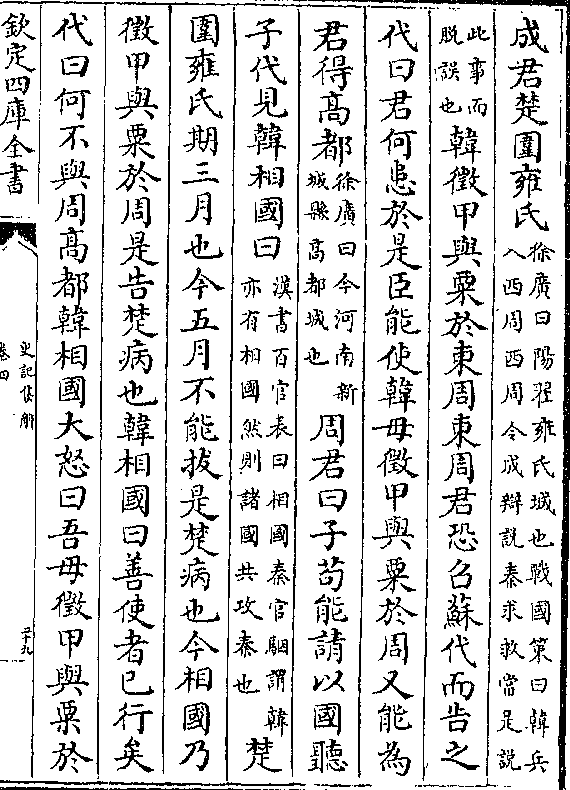 成君楚圍雍氏徐廣曰陽翟雍氏城也戰國策曰韓兵入西周西周令成辯説秦求救當是説
此事而脱誤也韓徵甲與粟於東周東周君恐召蘇代而告之
代曰君何患於是臣能使韓毋徵甲與粟於周又能為
君得髙都徐廣曰今河南新城縣髙都城也周君曰子苟能請以國聽
子代見韓相國曰漢書百官表曰相國秦官駰謂韓亦有相國然則諸國共攻秦也楚
圍雍氏期三月也今五月不能拔是楚病也今相國乃
徵甲與粟於周是告楚病也韓相國曰善使者已行矣
代曰何不與周髙都韓相國大怒曰吾毋徵甲與粟於
欽定四庫全書
史記集解
卷四
三十九